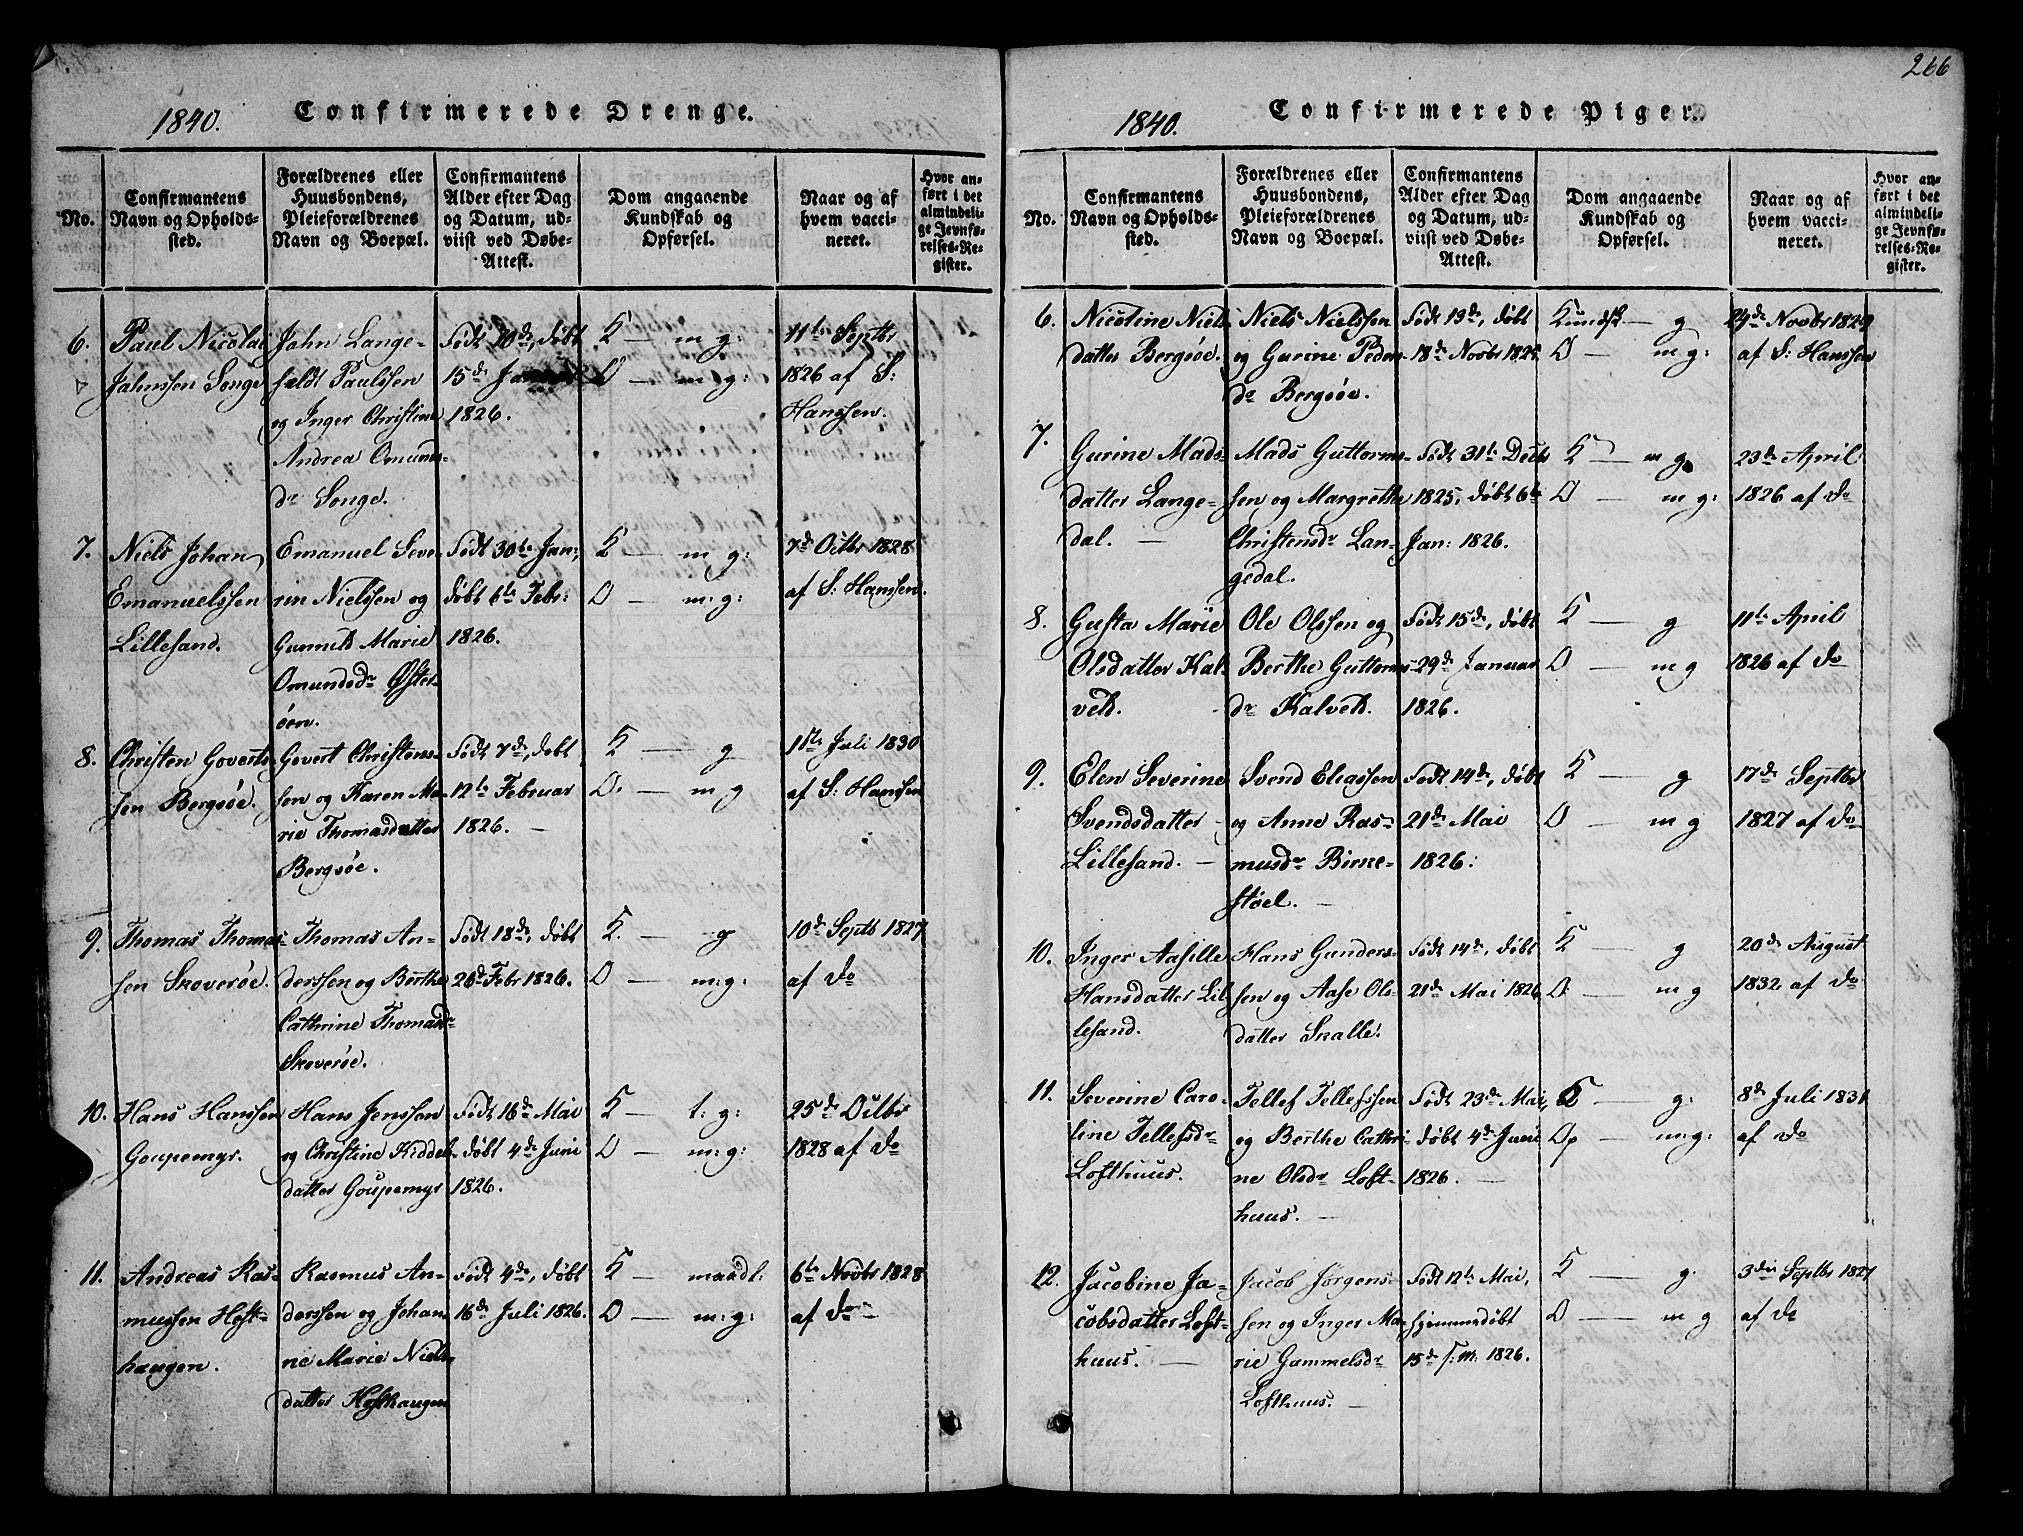 1840. Confirmerede Drenge.
No.
Confirmantens
Navn og Opholds-
sted.
Forældrenes eller
Huusbondens,
Pleieforældrenes
Navn og Boepæl.
Confirmantens
Alder efter Dag
og Datum, ud-
viist ved Døbe-
Attest.
Dom angaaende
Kundskab og
Opførsel.
Naar og af
hvem vacci-
neret.
Hvor an-
ført i det
almindeli-
ge Jevnfø-
relses-Re-
gister.
6.
Paul Nicolai
Jahnssen Songe
Jahn Lange-
feldt Paulssen
og Inger Christine
Andrea Omunds-
dr Songe.
Født 20de, døbt
15de Januar
1826.
K — m: g:
O — m: g:
11te Septbr
1826 af S:
Hanssen.
7.
Niels Johan
Emanuelssen
Lillesand.
Emanuel Seve-
rin Nielssen og
Gunnild Marie
Omundsdr Øster-
øen.
Født 30te Jan:
døbt 6te Febr:
1826.
K — m: g:
O — m: g:
7de Octbr 1828
af S: Hanssen.
8.
Christen Goverts-
sen Bergsøe.
Govert Christens-
sen og Karen Ma-
rie Thomasdatter
Bergsøe.
Født 7de, døbt
12te Februar
1826. —
K — g
O. — m g
1ste Juli 1830
af S: Hanssen
9.
Thomas Thomas-
sen Skoverøe.
Thomas An-
derssen og Berthe
Cathrine Thomasdr
Skoverøe.
Født 18de, døbt
26de Febr 1826.
K. — g
O — m: g:
10de Septb 1827
af do
10.
Hans Hanssen
Goupemyr.
Hans Jenssen
og Christine Kiddels-
datter Goupemyr
Født 16de Mai
døbt 4de Juni
1826.
K — t: g:
O — m: g:
25de Octbr
1828 af do
11.
Andreas Ras-
mussen Høft-
haugen.
Rasmus An-
derssen og Johan-
ne Marie Niels-
datter Høfthaugen
Født 4de, døbt
16de Juli 1826.
K — maadl:
O — m: g:
6te Novbr 1828
af do
266
1840. Confirmerede Piger.
No.
Confirmantens
Navn og Opholds-
sted.
Forældrenes eller
Huusbondens,
Pleieforældrenes
Navn og Boepæl.
Confirmantens
Alder efter Dag
og Datum, ud-
viist ved Døbe-
Attest.
Dom angaaende
Kundskab og
Opførsel.
Naar og af
hvem vacci-
neret.
Hvor an-
ført i det
almindeli-
ge Jevnfø-
relses-Re-
gister.
6.
Nicoline Niels-
datter Bergsøe.
Niels Nielssen
og Gurine Peders-
dr Bergsøe.
Født 13de, døbt
18de Novbr 1825
Kundsk — g
O — m g:
24de Novbr 1829
af S: Hanssen
7.
Gurine Mads-
datter Lange-
dal. —
Mads Guttorms-
sen og Margrethe
Christensdr Lan-
gedal.
Født 31te Decbr
1825, døbt 6te
Jan: 1826.
K — m g
O — m g:
23de April
1826 af do
8.
Gusta Marie
Olsdatter Kal-
veld.
Ole Olssen og
Berthe Guttorms-
dr Kalveld.
Født 15de, døbt
29de Januar
1826.
K — g
O — m g
11te April
1826 af do
9.
Elen Severine
Svendsdatter
Lillesand. —
Svend Eliassen
og Anne Ras-
musdr Birke-
støel. —
Født 14de, døbt
21de Mai
1826.
K — g
O — m g
17de Septbr
1827 af do
10.
Inger Aasille
Hansdatter Lil-
lesand.
Hans Gunders-
sen og Aase Ols-
datter Skalle.
Født 14de, døbt
21de Mai 1826
K — g
O — m g
20de August
1832 af do
11.
Severine Caro-
line Tellefsdr
Lofthuus.
Tellef Tellefssen
og Berthe Cathri-
ne Olsdr Loft-
huus. —
Født 23de Mai,
døbt 4de Juni
1826. —
K — g:
O — m: g:
8de Juli 1831
af do
12.
Jacobine Ja-
cobsdatter Loft-
huus. —
Jacob Jørgens-
sen og Inger Ma-
rie Gammelsdr
Lofthuus. —
Født 12te Mai,
hjemmedøbt
15de s: m. 1826.
K — g.
O — m g
3die Septbr 1827
af do